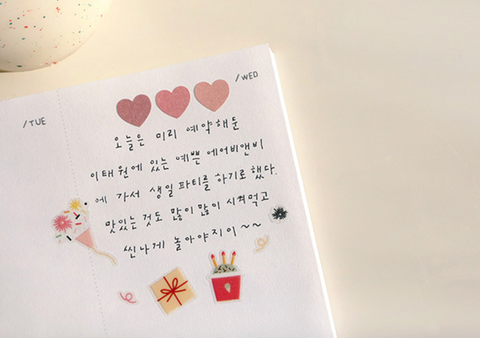 /TUE
/WED
오늘은 미리 예약해둔
이태원에 있는 예쁜 에어비앤비
에 가서 생일파티를 하기로 했다.
맛있는 것도 많이 많이 시켜먹고
씬나게 놀아야지이~~